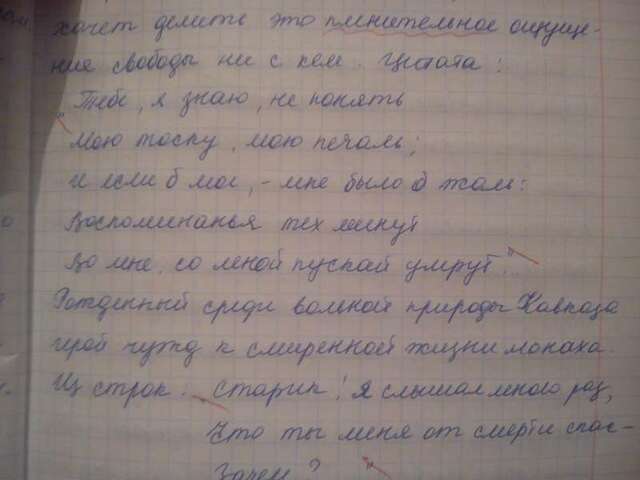 хочет делить это пленительное ощуще-
ния свободы ни с кем. Цитата:
Тебе, я знаю, не понять
"Мою тоску, мою печаль;
И если б мог, - мне было б жаль:
Воспоминанья тех минут
Во мне, со мной пускай умрут".
Рожденный среди вольной природы Кавказа
герой чужд к смиренной жизни монаха.
Из строк: "Старик! Я слышал много раз,
Что ты меня от смерти спас-
Зачем?"